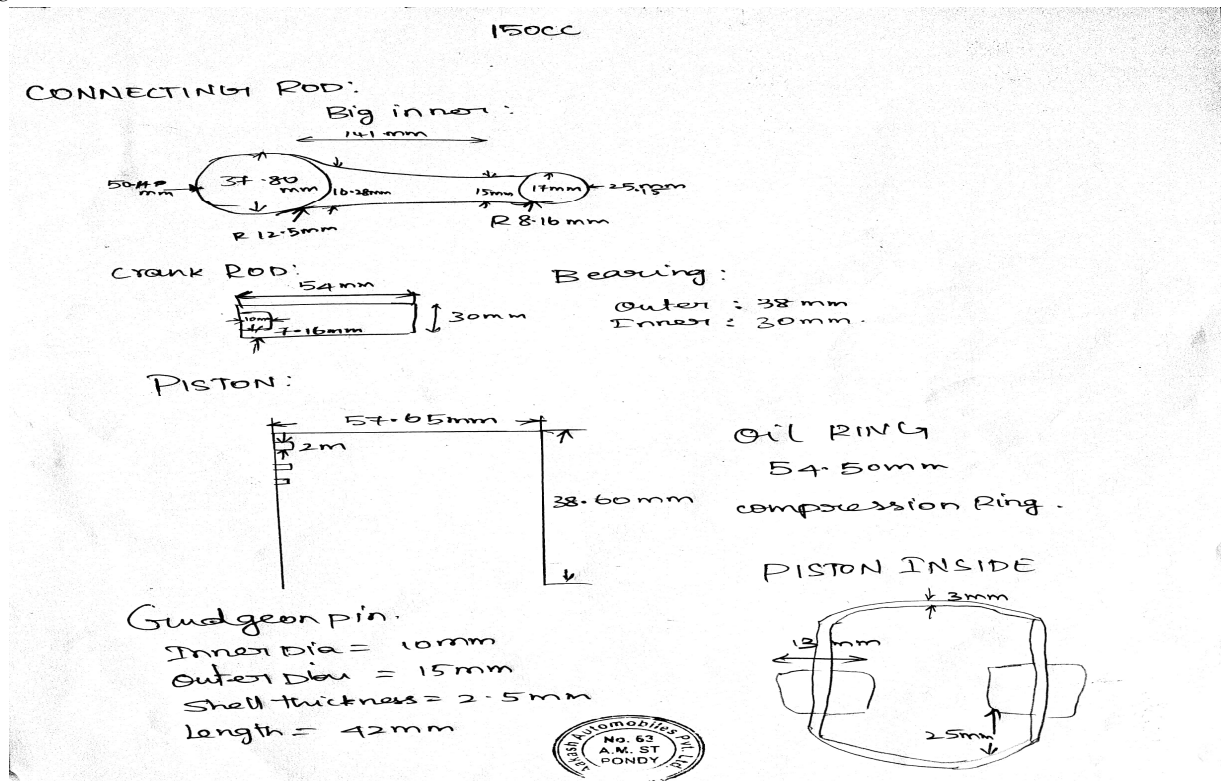 150CC
CONNECTING ROD:
Big inner:
141 mm
37.80
mm
mm
16.28mm
15mm
17mm
R 12.5mm
R 8.16 mm
Crank ROD:
54 mm
10m
7.16mm
30mm
Bearing:
Outer : 38 mm
Inner : 30mm.
PISTON:
57.65mm
2m
38.60 mm
Oil RING
54.50mm
compression Ring.
PISTON INSIDE
3mm
13 mm
25mm
Grudgeon pin.
Inner Dia = 10mm
Outer Dia = 15mm
Shell thickness = 2.5mm
Length = 42mm
Aakash Automobiles Pvt. Ltd
No. 63
A.M. ST
PONDY